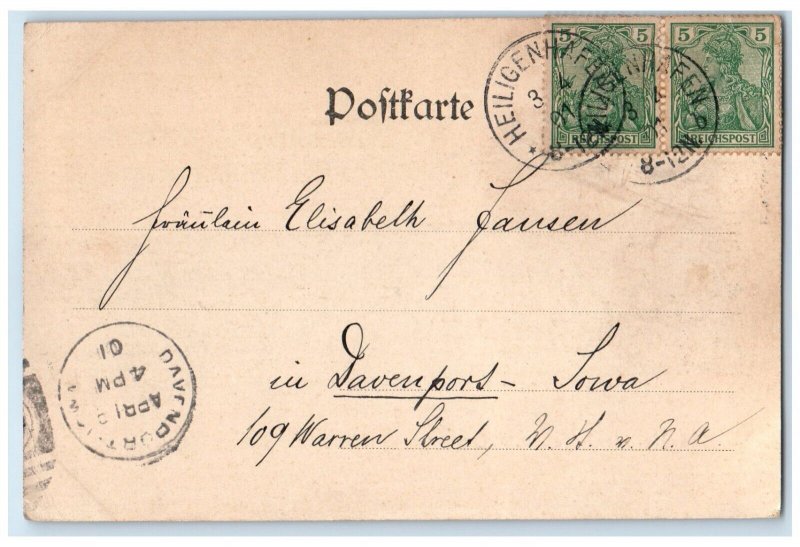 5 5
5 5
REICHSPOST REICHSPOST
* HEILIGENHAFEN *
3 4 01
8-12N
HEILIGENHAFEN
8-12N
Postkarte
Fräulein Elisabeth Jansen
in Davenport - Iowa
109 Warren Street, V. St. v. N. A.
DAVENPORT, IOWA
APR
4 PM
01